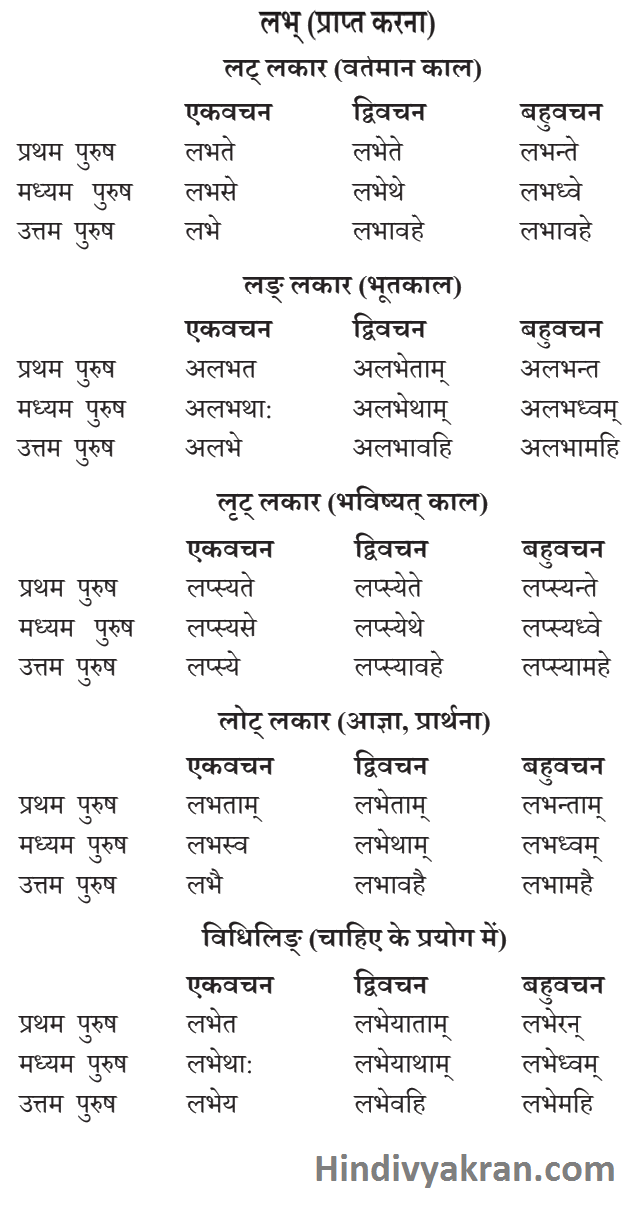 लभ् (प्राप्त करना)
लट् लकार (वर्तमान काल)
एकवचन द्विवचन बहुवचन
प्रथम पुरुष लभते लभेते लभन्ते
मध्यम पुरुष लभसे लभेथे लभध्वे
उत्तम पुरुष लभे लभावहे लभावहे
लङ् लकार (भूतकाल)
एकवचन द्विवचन बहुवचन
प्रथम पुरुष अलभत अलभेताम् अलभन्त
मध्यम पुरुष अलभथा: अलभेथाम् अलभध्वम्
उत्तम पुरुष अलभे अलभावहि अलभामहि
लृट् लकार (भविष्यत् काल)
एकवचन द्विवचन बहुवचन
प्रथम पुरुष लप्स्यते लप्स्येते लप्स्यन्ते
मध्यम पुरुष लप्स्यसे लप्स्येथे लप्स्यध्वे
उत्तम पुरुष लप्स्ये लप्स्यावहे लप्स्यामहे
लोट् लकार (आज्ञा, प्रार्थना)
एकवचन द्विवचन बहुवचन
प्रथम पुरुष लभताम् लभेताम् लभन्ताम्
मध्यम पुरुष लभस्व लभेथाम् लभध्वम्
उत्तम पुरुष लभै लभावहै लभामहै
विधिलिङ् (चाहिए के प्रयोग में)
एकवचन द्विवचन बहुवचन
प्रथम पुरुष लभेत लभेयाताम् लभेरन्
मध्यम पुरुष लभेथा: लभेयाथाम् लभेध्वम्
उत्तम पुरुष लभेय लभेवहि लभेमहि
Hindivyakran.com